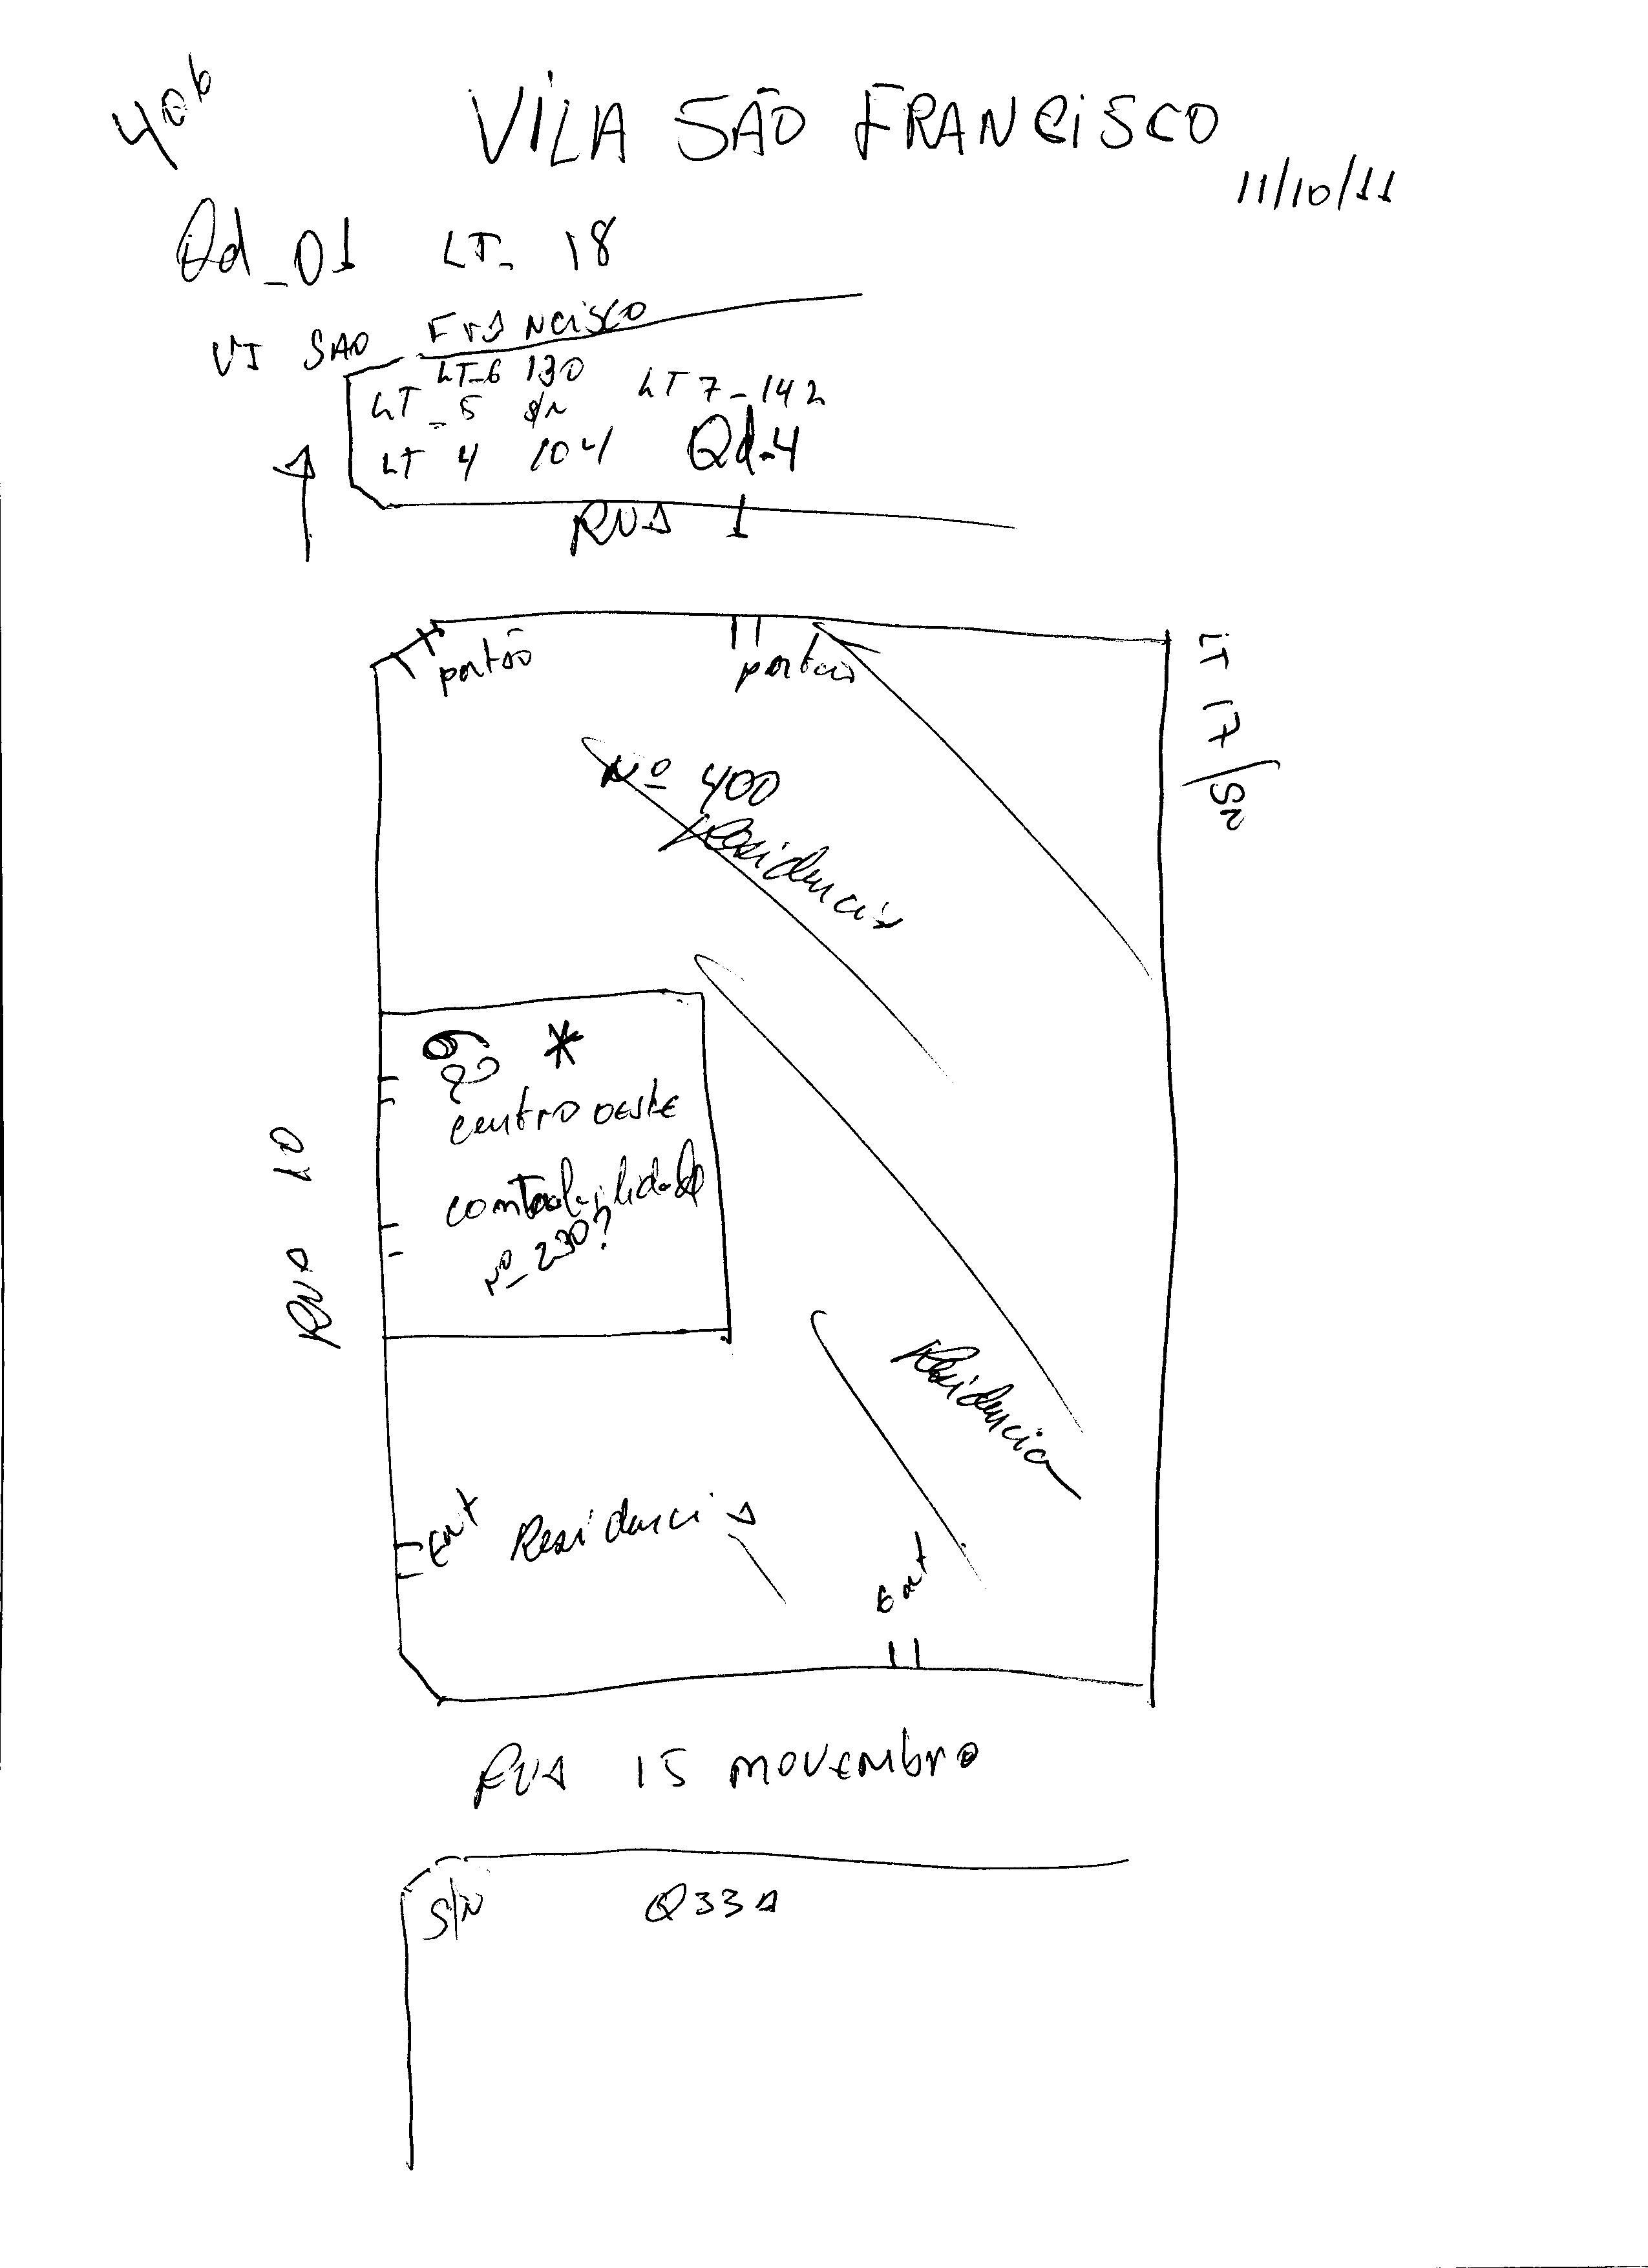 406
VILA SÃO FRANCISCO
11/10/11
Qd_01 LT_ 18
VI SAO FrANCISCO
LT_6 130
LT_5 S/N
LT 7_142
LT 4 104
Qd_4
RUA 1
portão
portão
LT 17/SN
Nº 400
Residencia
*
centro oeste
contabilidade
Nº_230?
RUA 10
Residencia
Ent
Residencia
Ent
RUA 15 movembro
S/N
Q33A